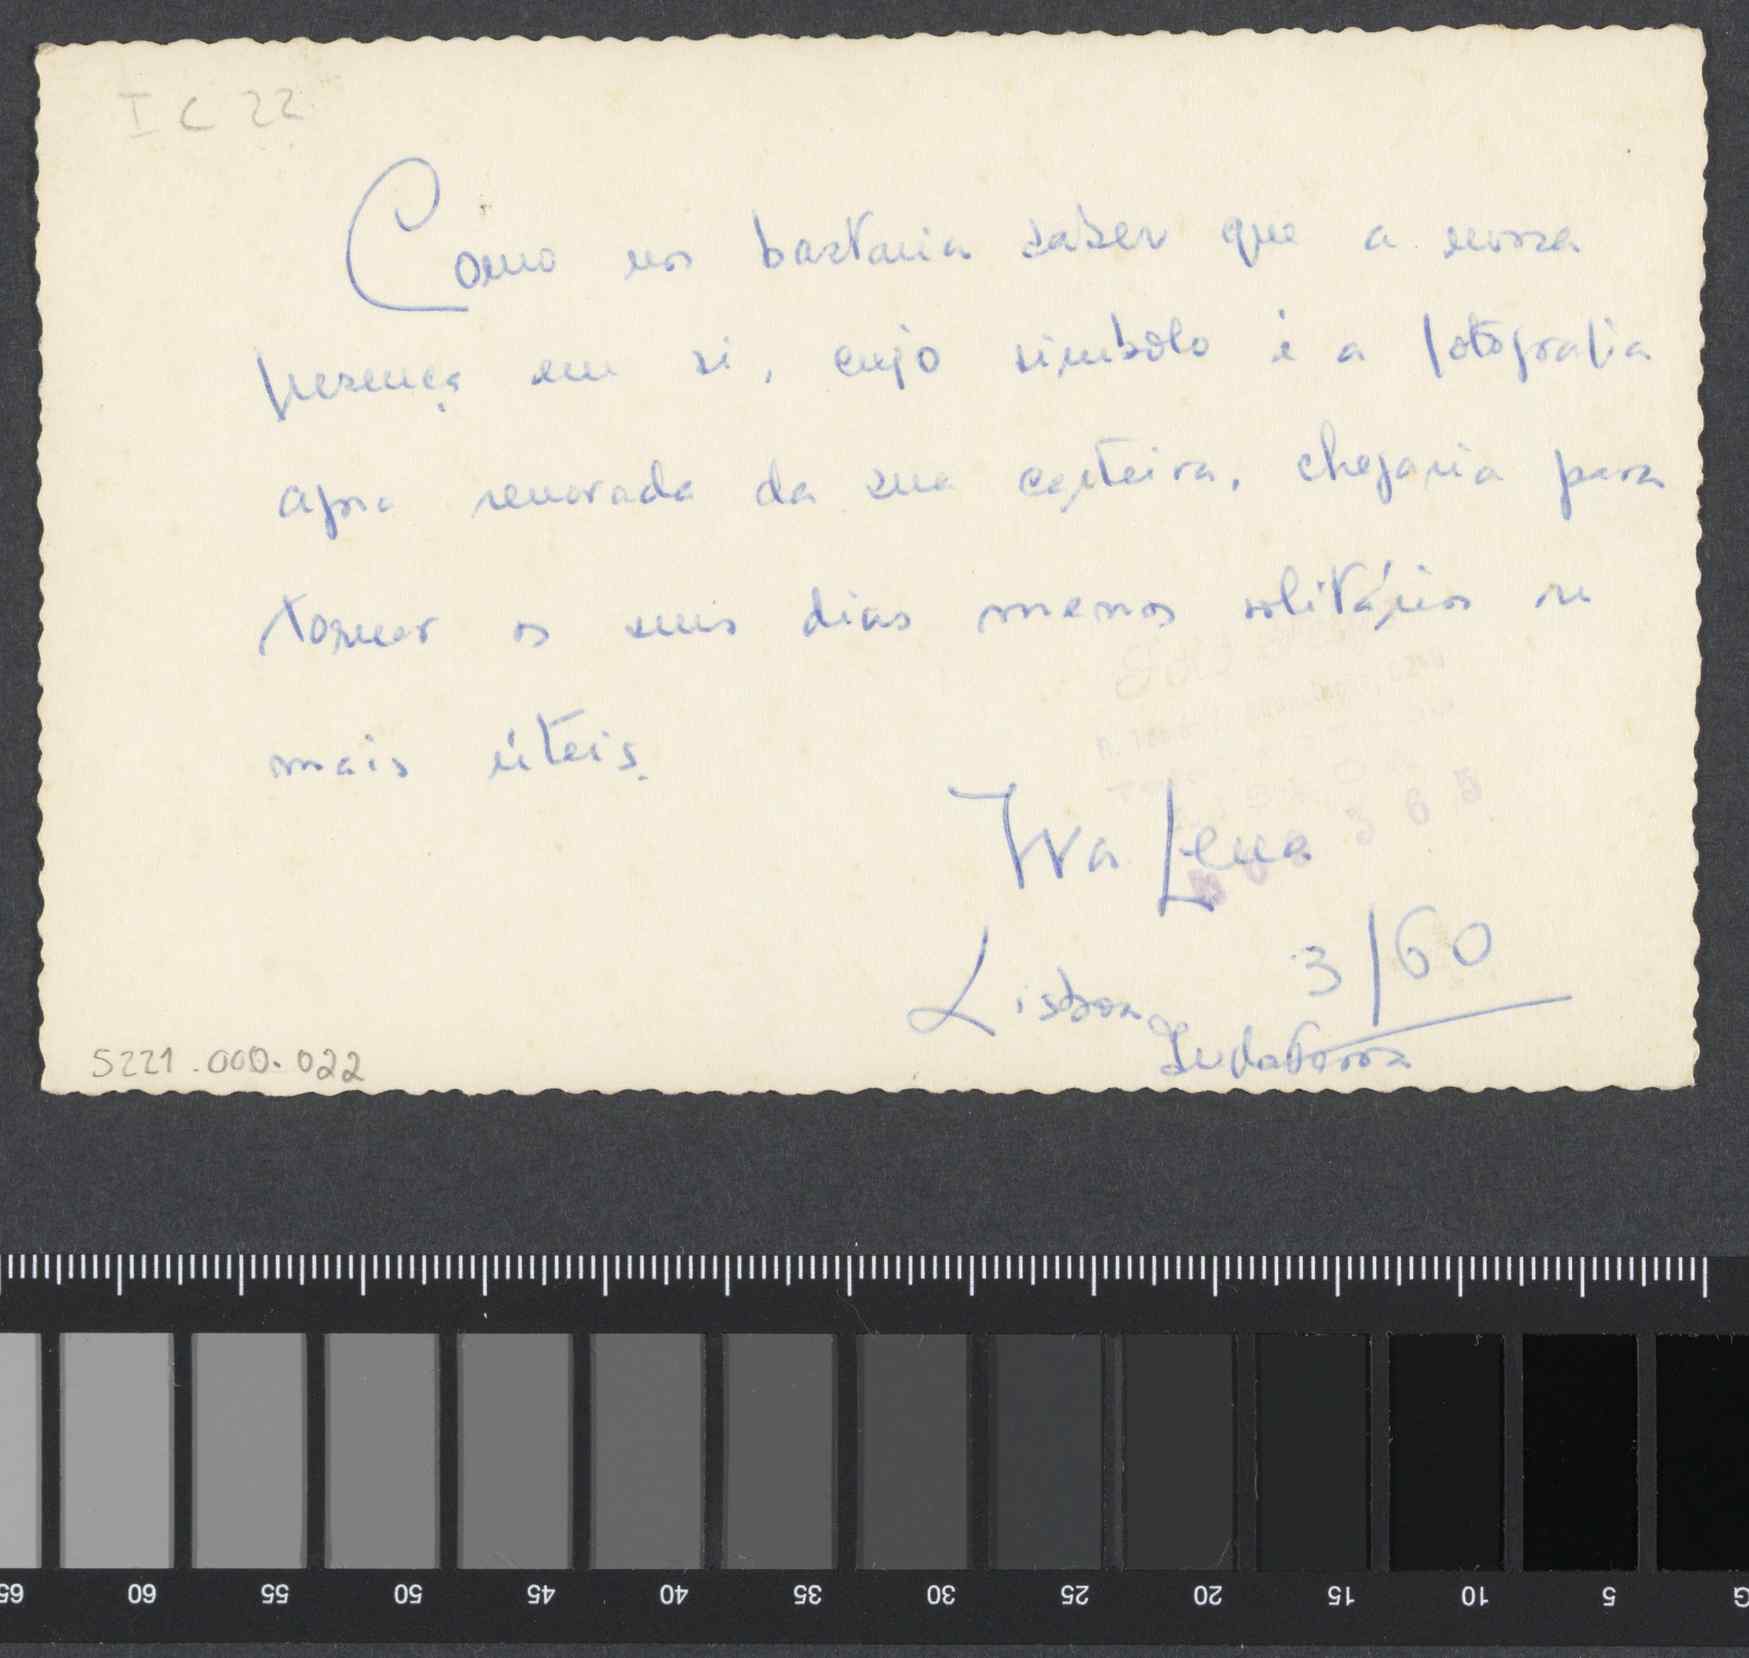 I C 22
Como nos bastaria saber que a nossa
presença em si, cujo símbolo é a fotografia
agora renovada da sua carteira, chegaria para
tornar os seus dias menos solitários ou
mais úteis.
Iva Lena
3 6 5
Lisboa 3/60
5221.000.022
65 60 55 50 45 40 35 30 25 20 15 10 5